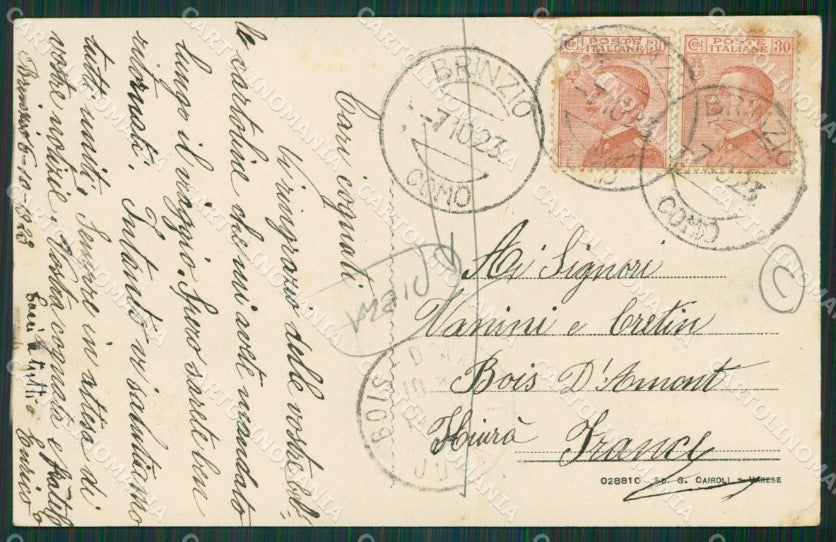 Cari cognati
Vi ringrazio delle vostre
le cartoline che mi avete mandato
lungo il viaggio. Spero sarete ben
ritornati. Intanto vi salutiamo
tutti uniti. Sempre in attesa di
vostre notizie. Vostra cognata e fratello
Brinzio 6-10-1923
Enrico
BRINZIO
-7.10.23
COMO
POSTE ITALIANE
Cent. 30
POSTE ITALIANE
Cent. 30
BRINZIO
7.10.23
COMO
Ai Signori
Vanini e Cretin
Bois D'Amont
Hiura
France
BOIS D'AM
028810 - ED. G. CAIROLI - VARESE
CARTOLINOMANIA